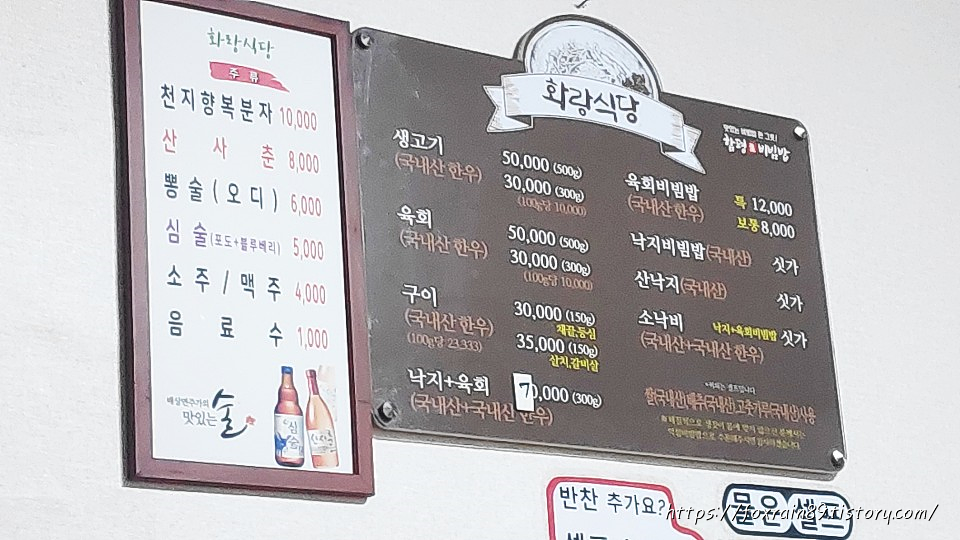 화랑식당
주류
천지향복분자 10,000
산사춘 8,000
뽕술(오디) 6,000
심술(포도+블루베리) 5,000
소주/맥주 4,000
음료수 1,000
배상면주가의
맛있는 술
심술
화랑식당
함평 비빔밥
생고기 50,000 (500g)
(국내산 한우) 30,000 (300g)
(100g당 10,000)
육회 50,000 (500g)
(국내산 한우) 30,000 (300g)
(100g당 10,000)
구이 30,000 (150g)
(국내산 한우) 채끝,등심
(100g당 23,333) 35,000 (150g)
살치,갈비살
낙지+육회 70,000 (300g)
(국내산+국내산 한우)
육회비빔밥 특 12,000
(국내산 한우) 보통 8,000
낙지비빔밥(국내산) 싯가
산낙지(국내산) 싯가
소낙비 낙지+육회비빔밥 싯가
(국내산+국내산 한우)
쌀(국내산)배추(국내산)고춧가루(국내산)사용
반찬 추가요?
물은 셀프
https://foxrain89.tistory.com/